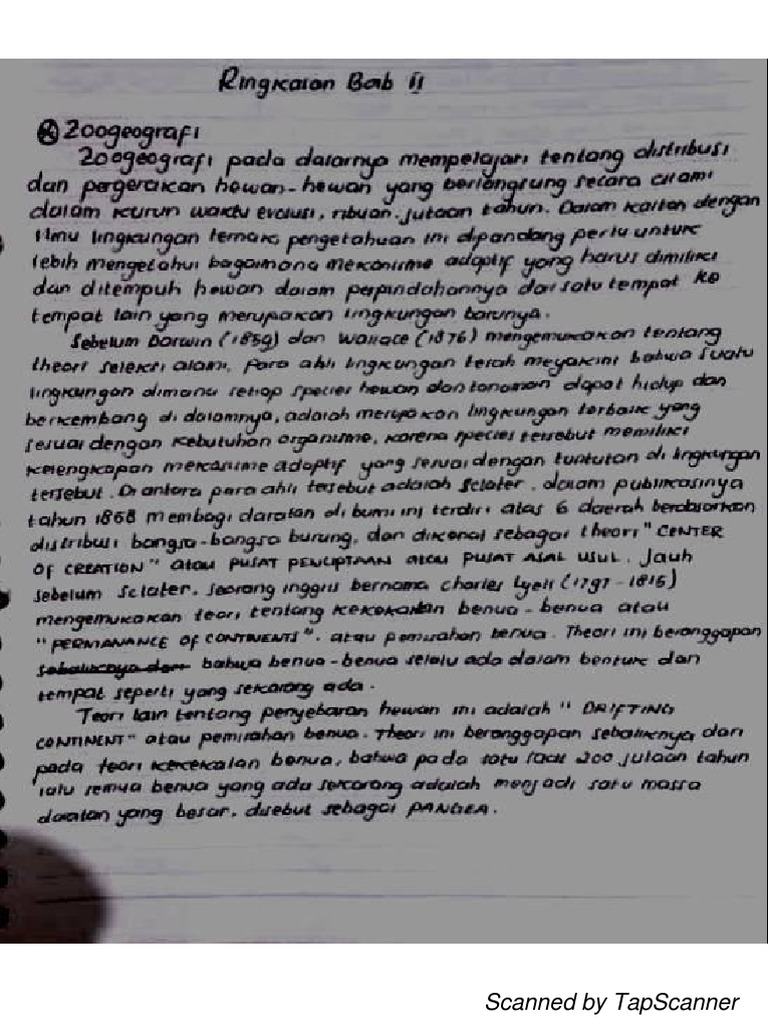 Ringkasan Bab II
Zoogeografi
Zoogeografi pada dasarnya mempelajari tentang distribusi
dan pergerakan hewan-hewan yang berlangsung secara alami
dalam kurun waktu evolusi, ribuan-jutaan tahun. Dalam kaitan dengan
ilmu lingkungan ternak, pengetahuan ini dipandang perlu untuk
lebih mengetahui bagaimana mekanisme adaptif yang harus dimiliki
dan ditempuh hewan dalam perpindahannya dari satu tempat ke
tempat lain yang merupakan lingkungan barunya.
Sebelum Darwin (1859) dan Wallace (1876) mengemukakan tentang
theori seleksi alami, para ahli lingkungan telah meyakini bahwa suatu
lingkungan dimana setiap species hewan dan tanaman dapat hidup dan
berkembang di dalamnya, adalah merupakan lingkungan terbaik yang
sesuai dengan kebutuhan organisme, karena species tersebut memiliki
kelengkapan mekanisme adaptif yang sesuai dengan tuntutan di lingkungan
tersebut. Di antara para ahli tersebut adalah Sclater, dalam publikasinya
tahun 1858 membagi daratan di bumi ini terdiri atas 6 daerah berdasarkan
distribusi bangsa-bangsa burung, dan dikenal sebagai theori "CENTER
OF CREATION" atau PUSAT PENCIPTAAN atau PUSAT ASAL USUL. Jauh
sebelum Sclater, seorang inggris bernama Charles Lyell (1797-1815)
mengemukakan teori tentang kekekalan benua-benua atau
"PERMANANCE OF CONTINENTS". atau pemisahan benua. Theori ini beranggapan
bahwa benua-benua selalu ada dalam bentuk dan
tempat seperti yang sekarang ada.
Teori lain tentang penyebaran hewan ini adalah "DRIFTING
CONTINENT" atau pemisahan benua. Theori ini beranggapan sebaliknya dari
pada teori kekekalan benua, bahwa pada satu saat 200 jutaan tahun
lalu semua benua yang ada sekarang adalah menjadi satu massa
daratan yang besar, disebut sebagai PANGEA.
Scanned by TapScanner